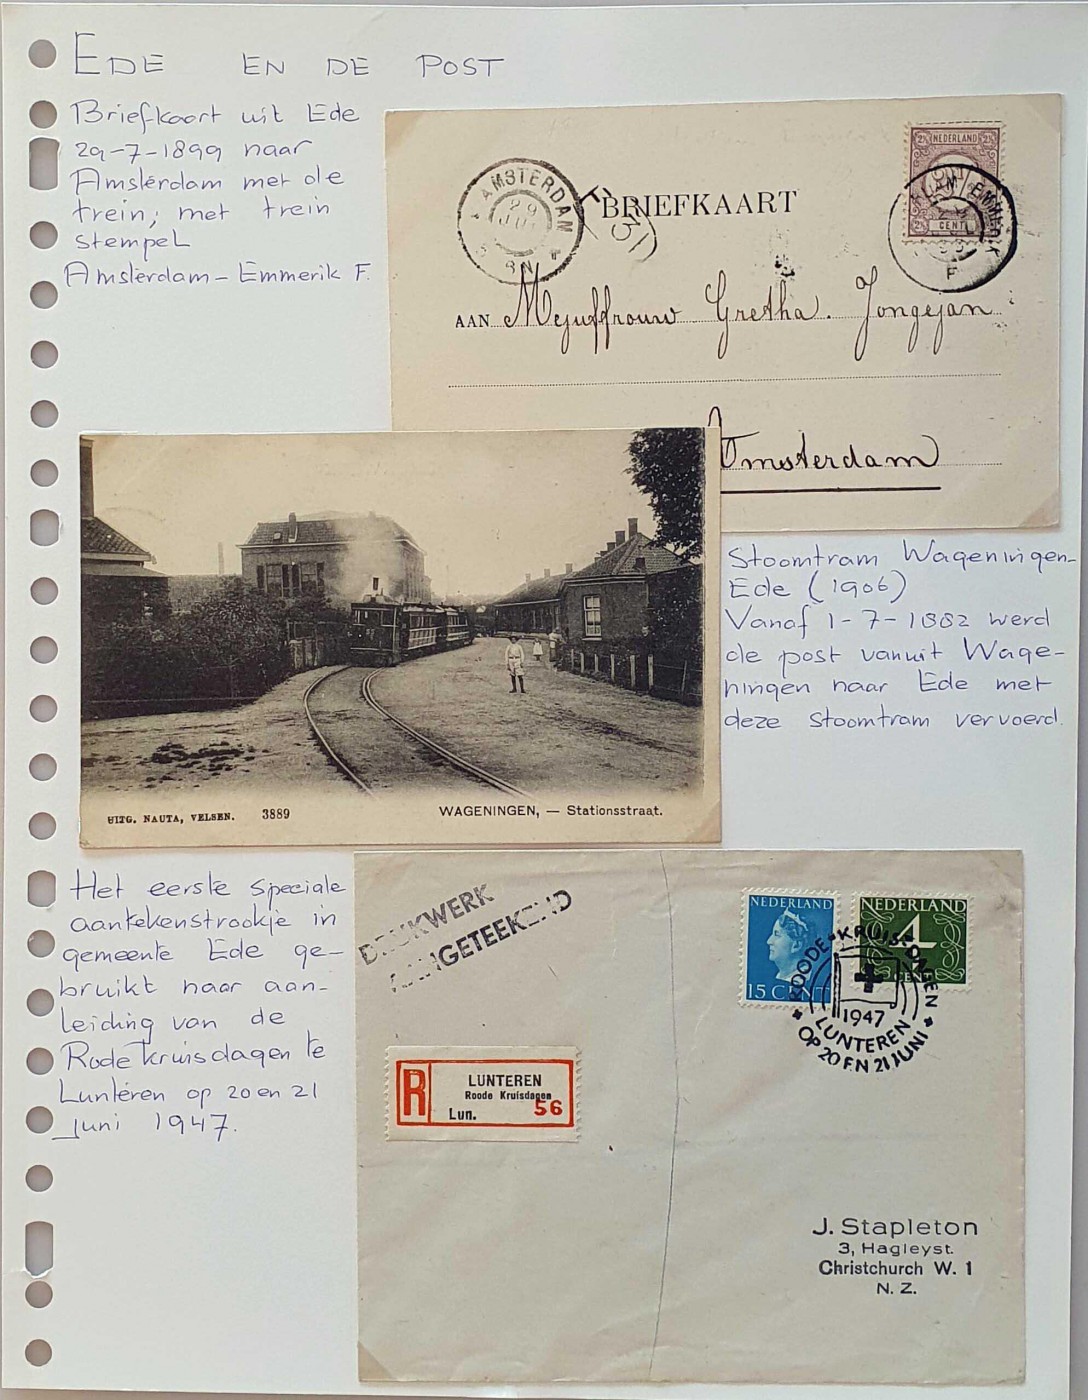 EDE EN DE POST
Briefkaart uit Ede
29-7-1899 naar
Amsterdam met de
trein; met trein
stempel
Amsterdam - Emmerik F.
AMSTERDAM
29
JUL
8 N
BRIEFKAART
NEDERLAND
2½
CENT
EMMERIK
F
AAN Mejuffrouw Gretha. Jongejan
Amsterdam
UITG. NAUTA, VELSEN. 3889
WAGENINGEN, — Stationsstraat.
Stoomtram Wageningen-
Ede (1906)
Vanaf 1-7-1882 werd
de post vanuit Wage-
ningen naar Ede met
deze stoomtram vervoerd.
Het eerste speciale
aantekenstrookje in
gemeente Ede ge-
bruikt naar aan-
leiding van de
Rode kruisdagen te
Lunteren op 20 en 21
juni 1947.
DRUKWERK
AANGETEEKEND
NEDERLAND
15 CENT
NEDERLAND
4
CENT
ROODE-KRUISDAGEN
1947
LUNTEREN
OP 20 EN 21 JUNI
R
LUNTEREN
Roode Kruisdagen
Lun. 56
J. Stapleton
3, Hagleyst.
Christchurch W. 1
N. Z.